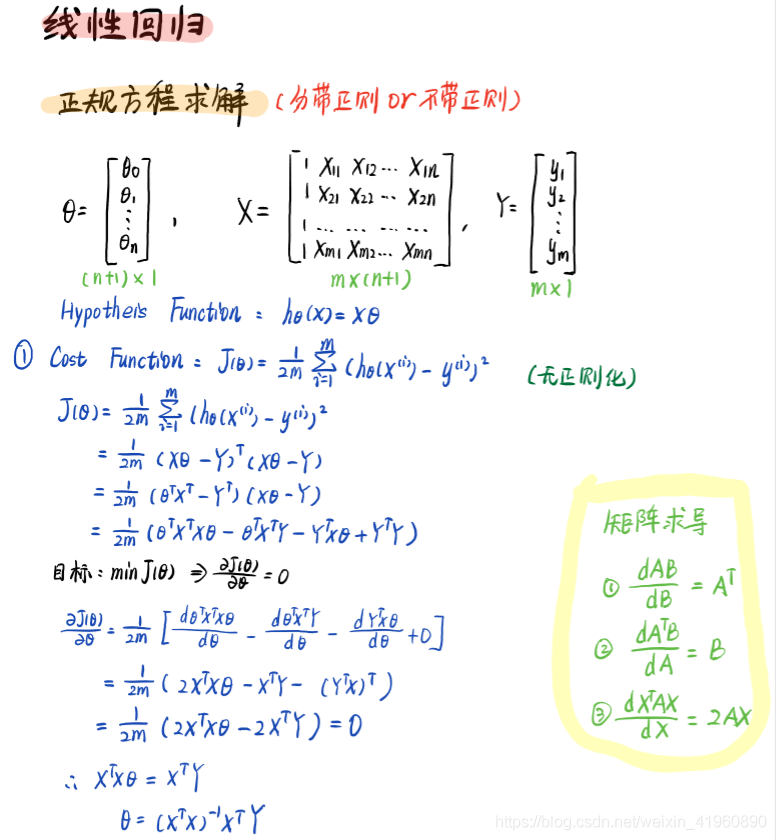 线性回归
正规方程求解 (分带正则 or 不带正则)
θ = [θ0 θ1 ⋮ θn], X = [1 X11 X12 ... X1n 1 X21 X22 ... X2n 1 ... ... ... ... 1 Xm1 Xm2 ... Xmn], Y = [y1 y2 ⋮ ym]
(n+1)×1 m×(n+1) m×1
Hypotheis Function : hθ(x) = Xθ
① Cost Function : J(θ) = 1/2m Σ_{i=1}^{m} (hθ(x⁽ⁱ⁾) - y⁽ⁱ⁾)² (无正则化)
J(θ) = 1/2m Σ_{i=1}^{m} (hθ(x⁽ⁱ⁾) - y⁽ⁱ⁾)²
= 1/2m (Xθ - Y)ᵀ(Xθ - Y)
= 1/2m (θᵀXᵀ - Yᵀ)(Xθ - Y)
= 1/2m (θᵀXᵀXθ - θᵀXᵀY - YᵀXθ + YᵀY)
目标: min J(θ) ⇒ ∂J(θ)/∂θ = 0
∂J(θ)/∂θ = 1/2m [dθᵀXᵀXθ/dθ - dθᵀXᵀY/dθ - dYᵀXθ/dθ + 0]
= 1/2m (2XᵀXθ - XᵀY - (YᵀX)ᵀ)
= 1/2m (2XᵀXθ - 2XᵀY) = 0
∴ XᵀXθ = XᵀY
θ = (XᵀX)⁻¹XᵀY
矩阵求导
① dAB/dB = Aᵀ
② dAᵀB/dA = B
③ dXᵀAX/dX = 2AX
https://blog.csdn.net/weixin_41960890